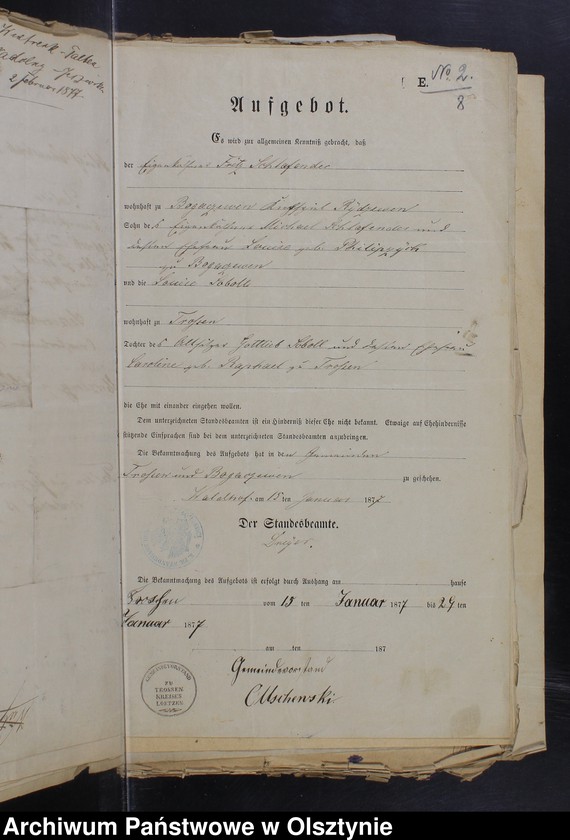 2 Februar 1877
E. No. 2.
8
Aufgebot.
Es wird zur allgemeinen Kenntniß gebracht, daß
der Eigenkäthner Fritz Schlafender
wohnhaft zu Bogaczewen Kirchspiel Rydzewen
Sohn des Eigenkäthners Michael Schlafender und
dessen Ehefrau Louise geb. Philippzick
zu Bogaczewen
und die Louise Soboll
wohnhaft zu Trossen
Tochter des Altsitzers Gottlieb Soboll und dessen Ehefrau
Caroline geb. Raphael zu Trossen
die Ehe mit einander eingehen wollen.
Dem unterzeichneten Standesbeamten ist ein Hinderniß dieser Ehe nicht bekannt. Etwaige auf Ehehindernisse
stützende Einsprachen sind bei dem unterzeichneten Standesbeamten anzubringen.
Die Bekanntmachung des Aufgebots hat in den Gemeinden
Trossen und Bogaczewen zu geschehen.
am 15 ten Januar 1877
Der Standesbeamte.
Die Bekanntmachung des Aufgebots ist erfolgt durch Aushang am hause
Troschen vom 15 ten Januar 1877 bis 29 ten
Januar 1877
am ten 187
Gemeindevorstand
GEMEINDEVORSTAND
ZU
TROSSEN
KREISES
LOETZEN
Archiwum Państwowe w Olsztynie